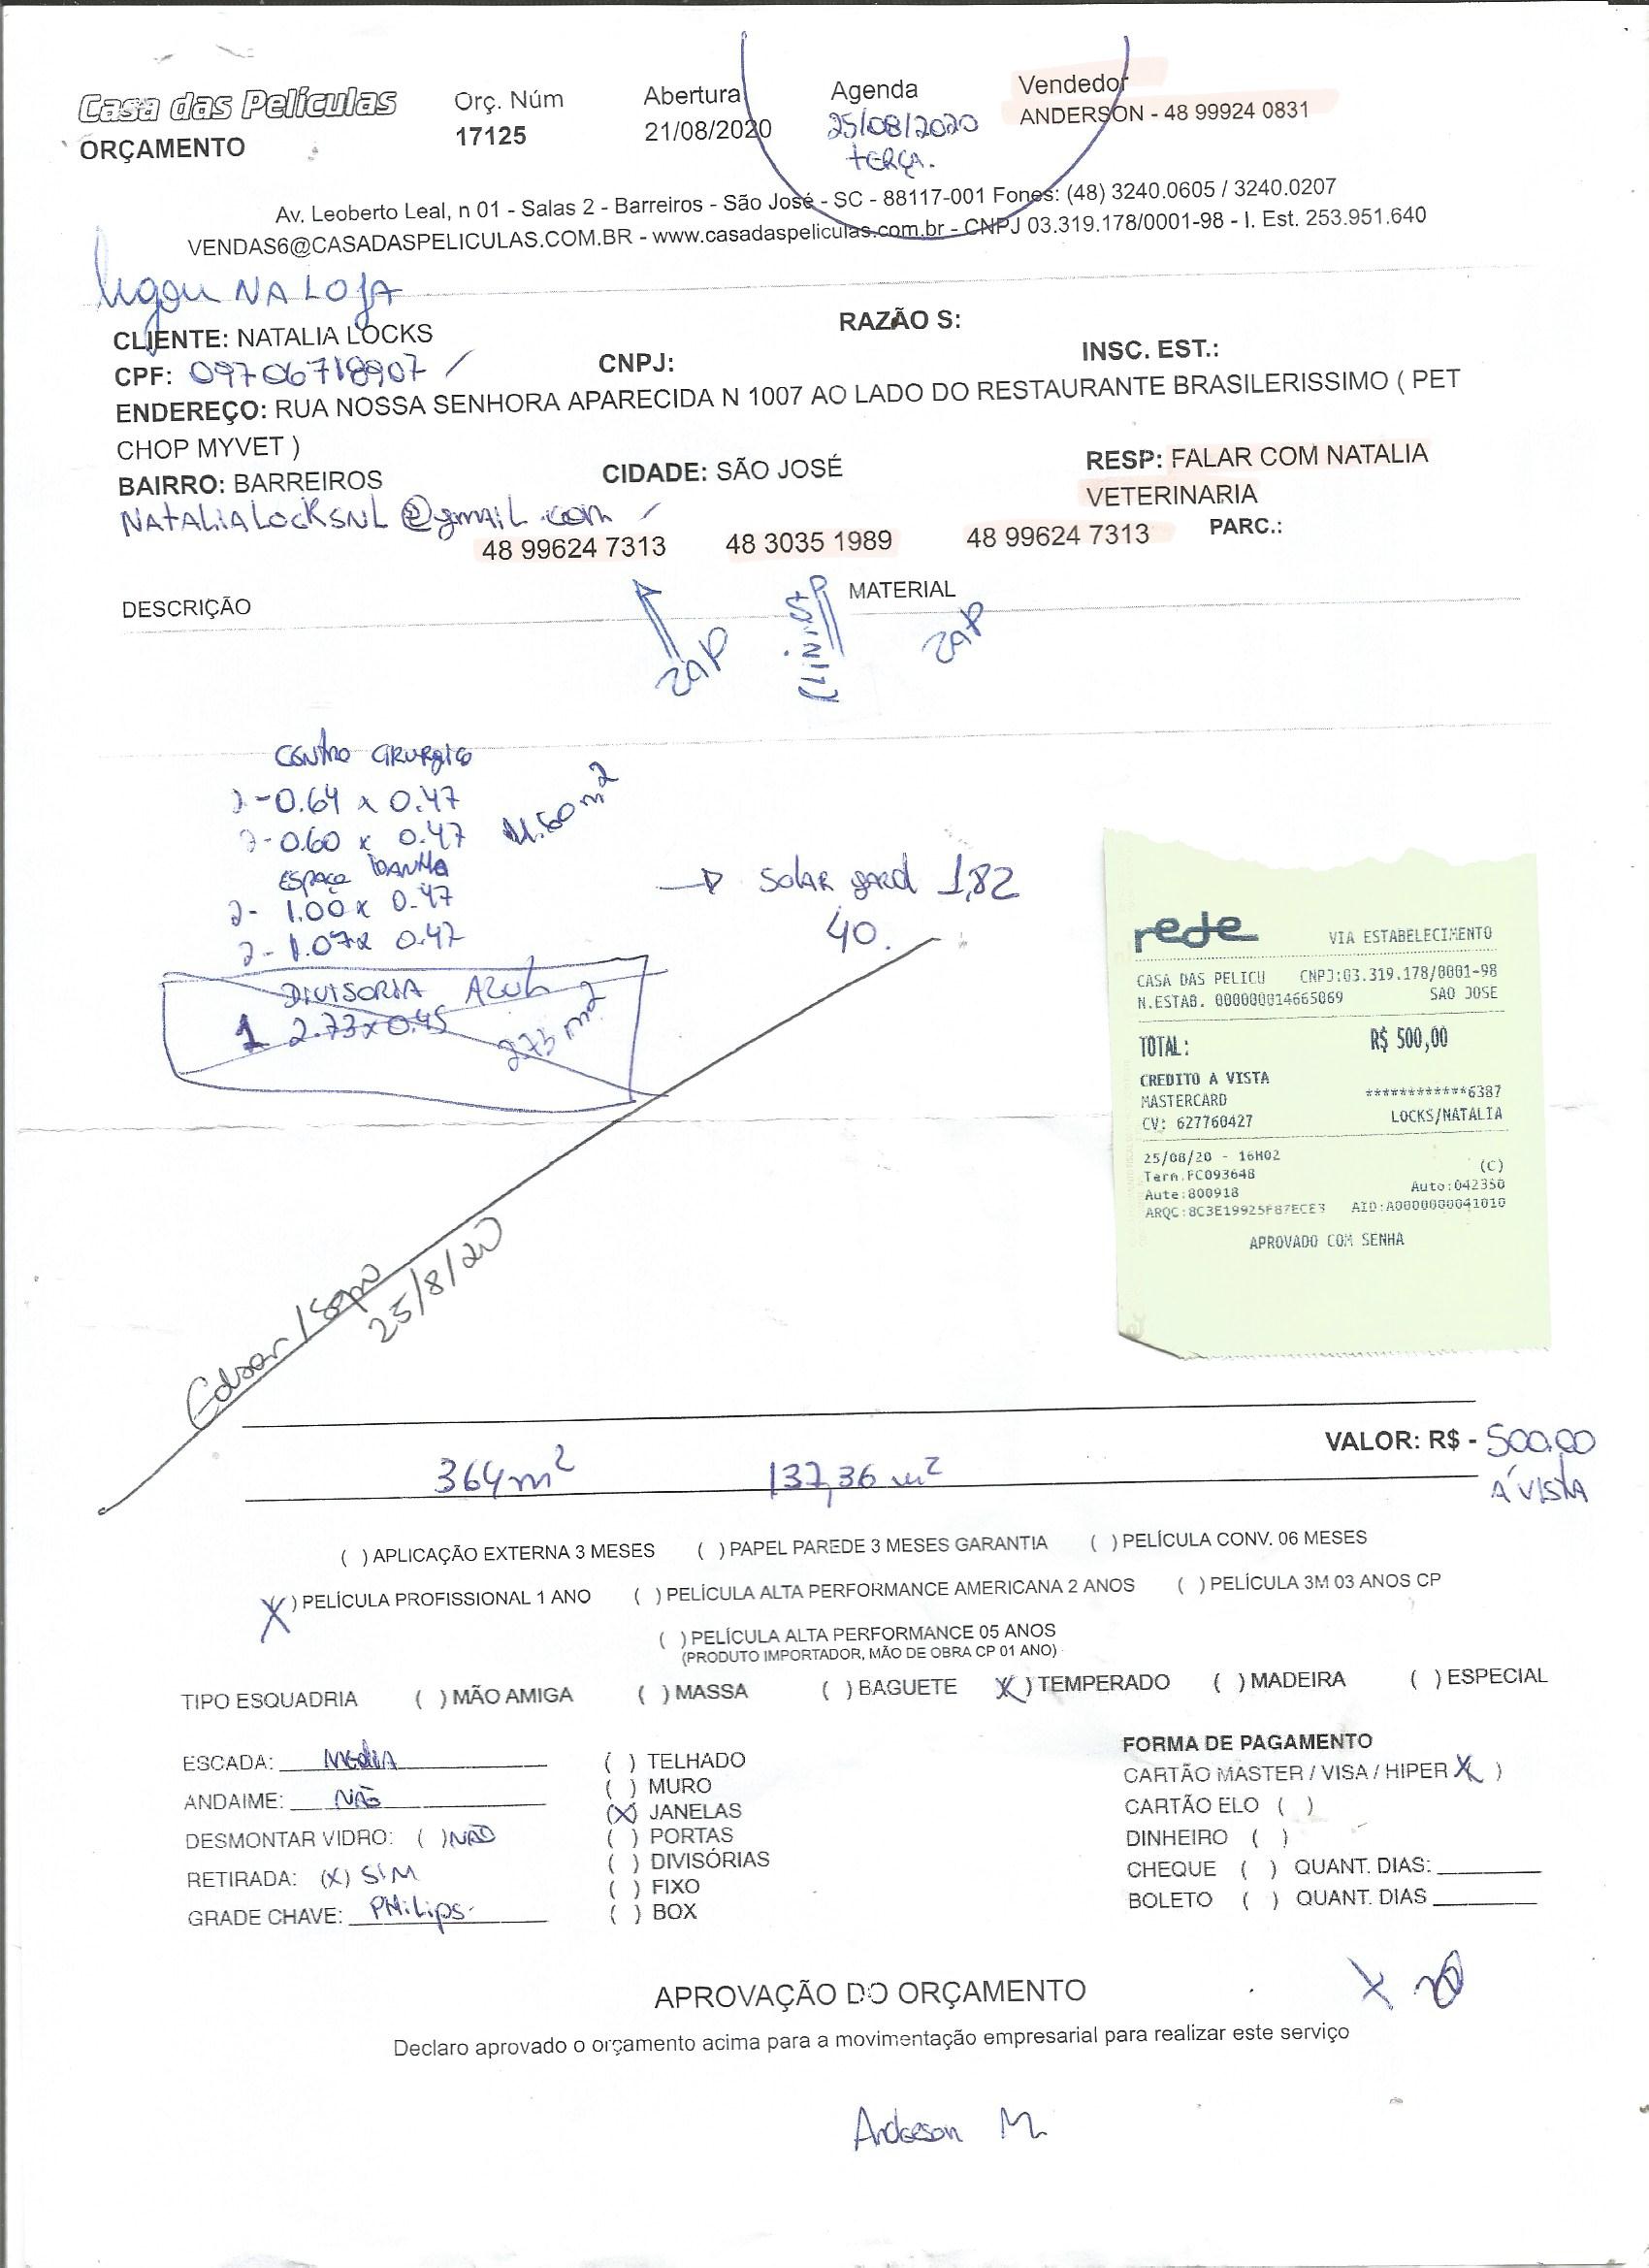 Casa das Películas
ORÇAMENTO
Orç. Núm
17125
Abertura
21/08/2020
Agenda
25/08/2020
TERÇA.
Vendedor
ANDERSON - 48 99924 0831
Av. Leoberto Leal, n 01 - Salas 2 - Barreiros - São José - SC - 88117-001 Fones: (48) 3240.0605 / 3240.0207
VENDAS6@CASADASPELICULAS.COM.BR - www.casadaspeliculas.com.br - CNPJ 03.319.178/0001-98 - I. Est. 253.951.640
ligou NA LOJA
CLIENTE: NATALIA LOCKS
RAZÃO S:
CPF: 09706718907
CNPJ:
INSC. EST.:
ENDEREÇO: RUA NOSSA SENHORA APARECIDA N 1007 AO LADO DO RESTAURANTE BRASILERISSIMO ( PET
CHOP MYVET )
BAIRRO: BARREIROS
CIDADE: SÃO JOSÉ
RESP: FALAR COM NATALIA
VETERINARIA
NATALIALOCKSNL@gmail.com
48 99624 7313
48 3035 1989
48 99624 7313
PARC.:
DESCRIÇÃO
MATERIAL
ZAP
ZAP
CENTRO CIRURGICO
2-0.64 x 0.47
2-0.60 x 0.47
ESPAÇO BANHO
2- 1.00 x 0.47
2- 1.07 x 0.47
DIVISORIA AZUL
1 2.73x0.45
2.73 m2
→ SOLAR gard 1,82
40.
rede
VIA ESTABELECIMENTO
CASA DAS PELICU CNPJ:03.319.178/0001-98
N.ESTAB. 000000014665069 SAO JOSE
TOTAL: R$ 500,00
CREDITO A VISTA
MASTERCARD ************6387
CV: 627760427 LOCKS/NATALIA
25/08/20 - 16H02
Term.FC093648 (C)
Aute:800918 Auto:042350
ARQC:8C3E19925F87ECE3 AID:A0000000041010
APROVADO COM SENHA
25/8/20
VALOR: R$ - 500,00
À VISTA
364m2
137,36 m2
( ) APLICAÇÃO EXTERNA 3 MESES ( ) PAPEL PAREDE 3 MESES GARANTIA ( ) PELÍCULA CONV. 06 MESES
(X) PELÍCULA PROFISSIONAL 1 ANO ( ) PELÍCULA ALTA PERFORMANCE AMERICANA 2 ANOS ( ) PELÍCULA 3M 03 ANOS CP
( ) PELÍCULA ALTA PERFORMANCE 05 ANOS
(PRODUTO IMPORTADOR, MÃO DE OBRA CP 01 ANO)
TIPO ESQUADRIA ( ) MÃO AMIGA ( ) MASSA ( ) BAGUETE (X) TEMPERADO ( ) MADEIRA ( ) ESPECIAL
ESCADA: MEDIA
ANDAIME: NÃO
DESMONTAR VIDRO: ( ) NÃO
RETIRADA: (X) SIM
GRADE CHAVE: PHILIPS.
( ) TELHADO
( ) MURO
(X) JANELAS
( ) PORTAS
( ) DIVISÓRIAS
( ) FIXO
( ) BOX
FORMA DE PAGAMENTO
CARTÃO MASTER / VISA / HIPER X )
CARTÃO ELO ( )
DINHEIRO ( )
CHEQUE ( ) QUANT. DIAS:
BOLETO ( ) QUANT. DIAS
APROVAÇÃO DO ORÇAMENTO
Declaro aprovado o orçamento acima para a movimentação empresarial para realizar este serviço
Anderson M.